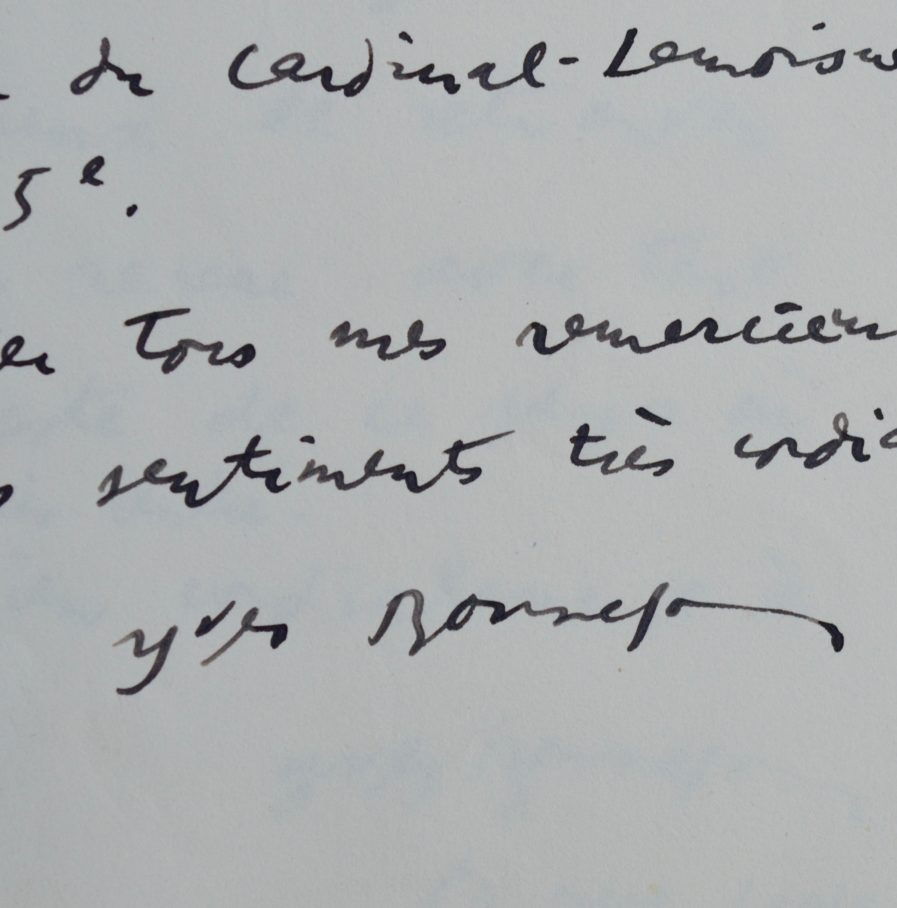 du Cardinal-Lemoine
5e.
tous mes remerciem
sentiments très cordia
Yves Bonnefoy